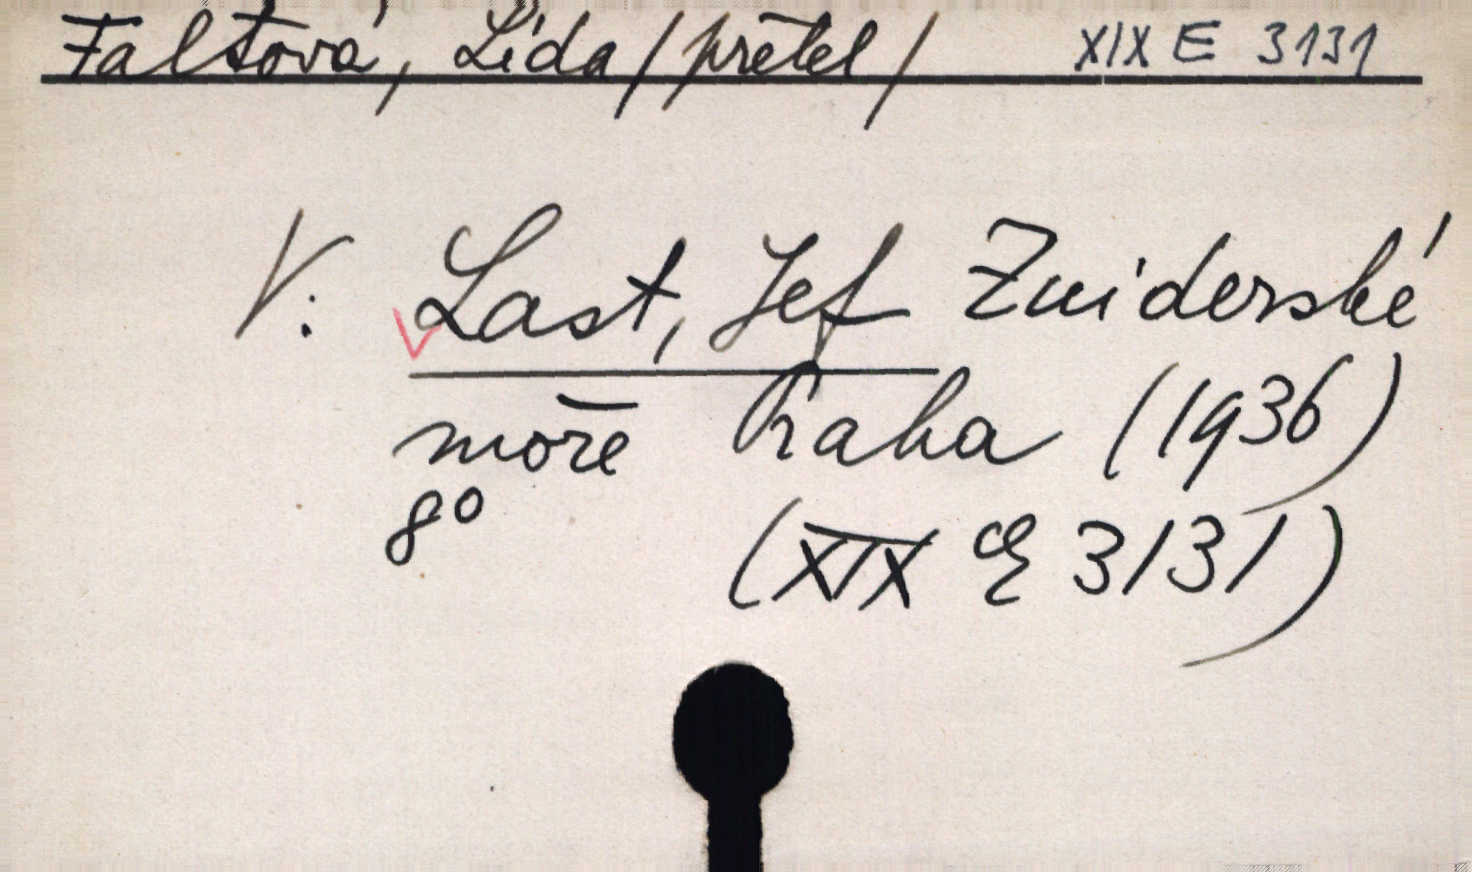 Faltová, Lída /přel/ XIX E 3131
V: Last, Jef Zuiderské
moře Praha (1936)
8°
(XIX E 3131)